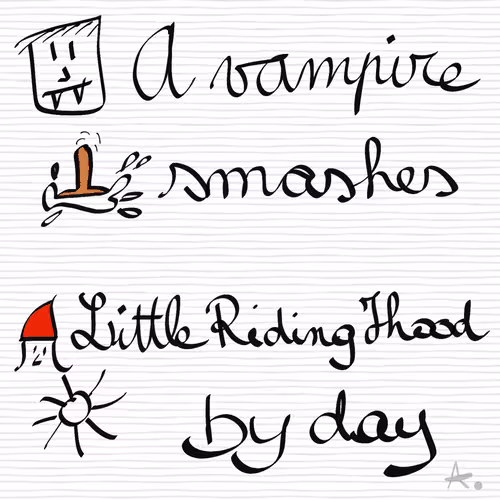 A vampire
smashes
Little Riding Thood
by day
A.